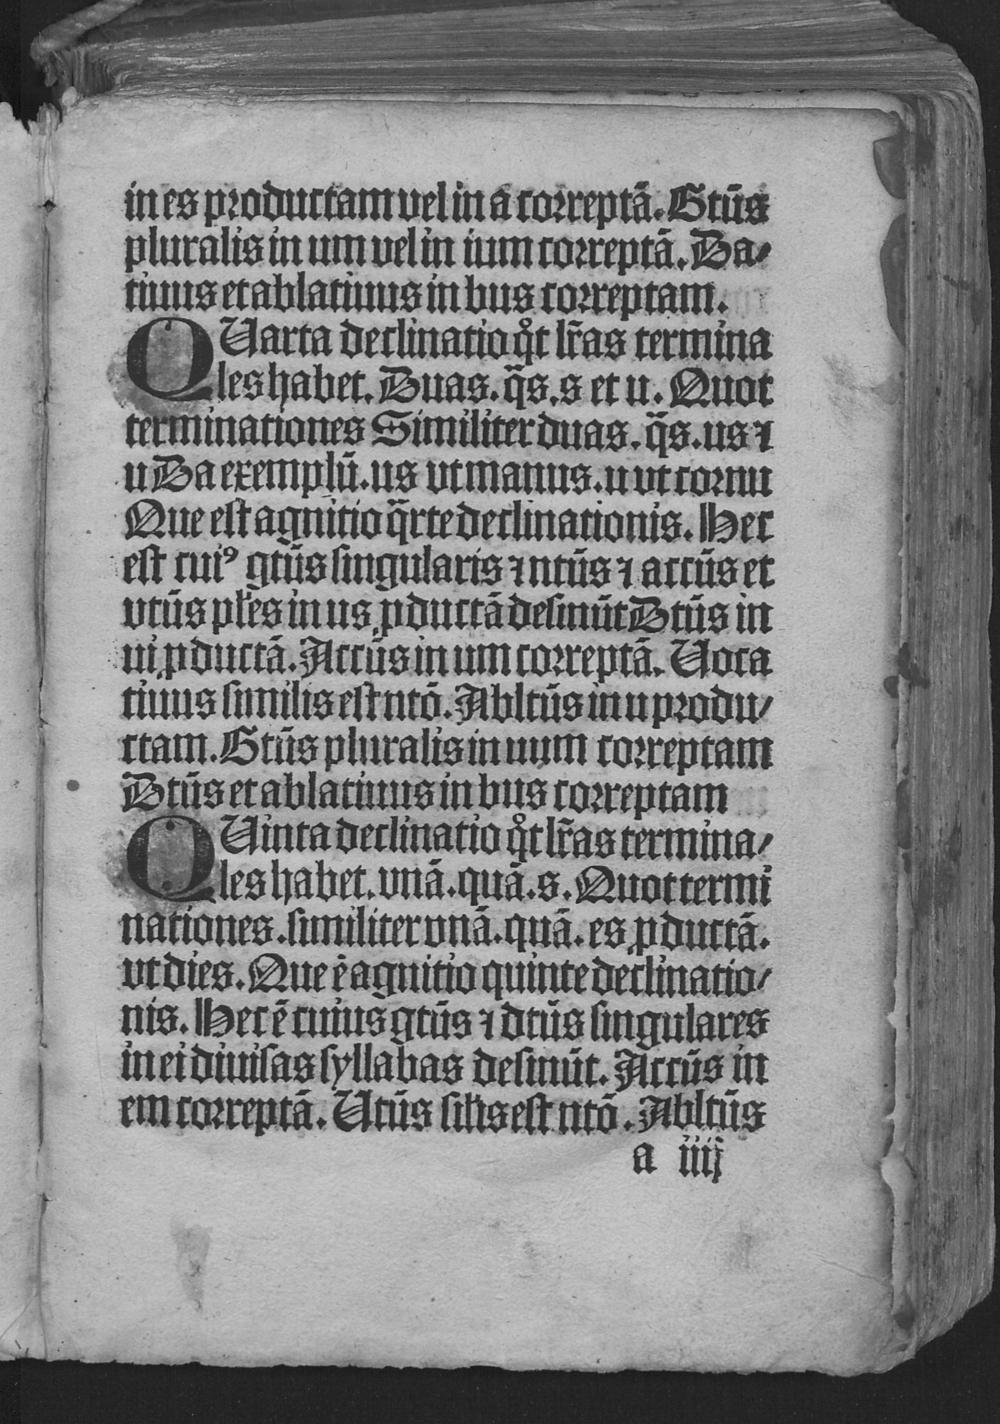 in es productam vel in a correptā. Gtūs
pluralis in um vel in ium correptā. Da⸗
tiuus et ablatiuus in bus correptam.
QUarta declinatio qͦt lr̄as termina
les habet. Duas. q̄s. s et u. Quot
terminationes Similiter duas. q̄s. us ⁊
u Da exemplū. us vt manus. u vt cornu
Que est agnitio q̄rte declinationis. Hec
est cuiꝰ gtūs singularis ⁊ ntūs ⁊ accūs et
vtūs pl̄es in us ꝓductā desinūt Dtūs in
ui ꝓductā. Accūs in um correptā. Uoca
tiuus similis est ntō. Abltūs in u produ⸗
ctam. Gtūs pluralis in uum correptam
Dtūs et ablatiuus in bus correptam
QUinta declinatio qͦt lr̄as termina⸗
les habet. vnā. quā. s. Quot termi
nationes. similiter vnā. quā. es ꝓductā.
vt dies. Que ē agnitio quinte declinatio⸗
nis. Hec ē cuius gtūs ⁊ dtūs singulares
in ei diuisas syllabas desinūt. Accūs in
em correptā. Utūs sil̄is est ntō. Abltūs
a iiij